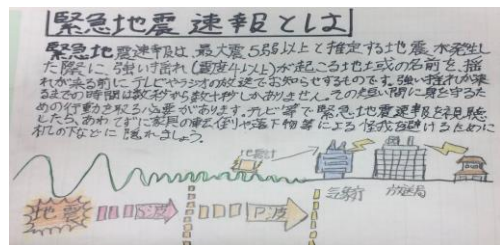 緊急地震速報とは
緊急地震速報は、最大震度5弱以上と推定する地震が発生し
た際に強い揺れ(震度4以上)が起こる地域の名前を、揺
れが来る前にテレビやラジオの放送でお知らせするものです。強い揺れが来
るまでの時間は数秒から数十秒しかありません。その短い間に身を守るた
めの行動を取る必要があります。テレビ等で緊急地震速報を見聞
したら、あわてずに家具の転倒や落下物等による怪我を避けるために
机の下などに隠れましょう。
地震計
地震
S波
P波
気象庁
放送局